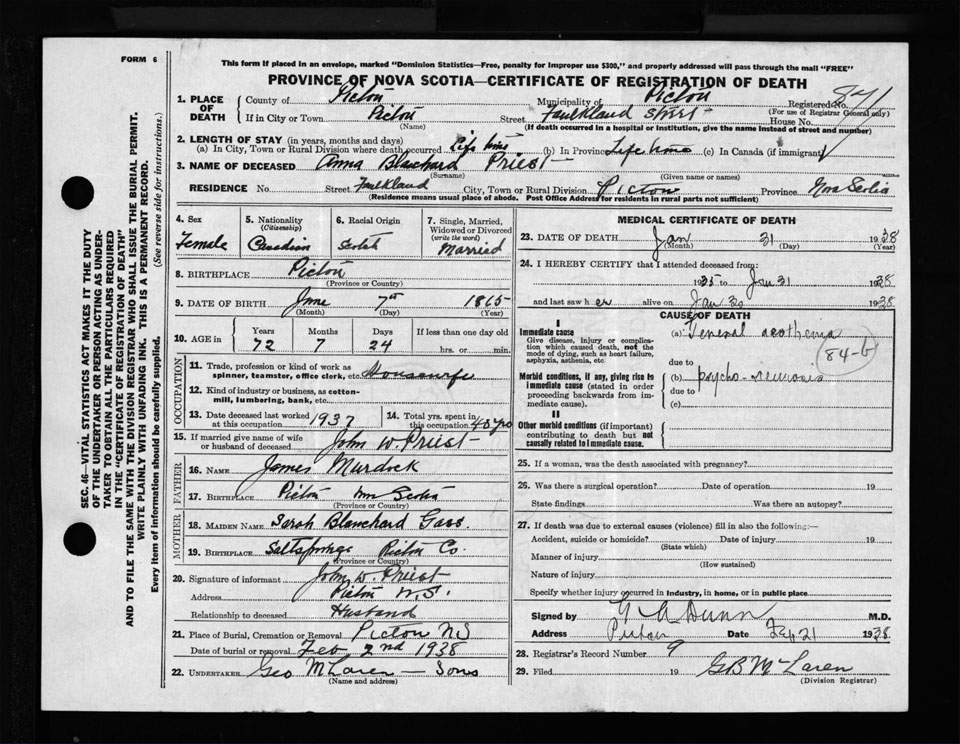 FORM 6
This form if placed in an envelope, marked "Dominion Statistics—Free, penalty for improper use $300," and properly addressed will pass through the mail "FREE"
PROVINCE OF NOVA SCOTIA—CERTIFICATE OF REGISTRATION OF DEATH
1. PLACE OF DEATH
County of Pictou Municipality of Pictou Registered No. 871
(For use of Registrar General only)
If in City or Town Pictou Street Faulkland Street House No.
(Name) (If death occurred in a hospital or institution, give the name instead of street and number)
2. LENGTH OF STAY (in years, months and days)
(a) In City, Town or Rural Division where death occurred Life time (b) In Province Life time (c) In Canada (if immigrant)
3. NAME OF DECEASED Anna Blanchard Priest
(Surname) (Given name or names)
RESIDENCE No. Street Faulkland City, Town or Rural Division Pictou Province Nova Scotia
(Residence means usual place of abode. Post Office Address for residents in rural parts not sufficient)
4. Sex
Female
5. Nationality
(Citizenship)
Canadian
6. Racial Origin
Scotch
7. Single, Married, Widowed or Divorced
(write the word)
Married
8. BIRTHPLACE Pictou
(Province or Country)
9. DATE OF BIRTH June 7th 1865
(Month) (Day) (Year)
10. AGE
Years Months Days If less than one day old
72 7 24 hrs. or min.
OCCUPATION
11. Trade, profession or kind of work as spinner, teamster, office clerk, etc. Housewife
12. Kind of industry or business, as cotton-mill, lumbering, bank, etc.
13. Date deceased last worked at this occupation 1937
14. Total yrs. spent in this occupation 45 yrs
15. If married give name of wife or husband of deceased John W Priest
FATHER
16. NAME James Murdock
17. BIRTHPLACE Pictou Nova Scotia
(Province or Country)
MOTHER
18. MAIDEN NAME Sarah Blanchard Gass.
19. BIRTHPLACE Saltsprings Pictou Co.
(Province or Country)
20. Signature of informant John W. Priest
Address Pictou N.S.
Relationship to deceased Husband
21. Place of Burial, Cremation or Removal Pictou NS
Date of burial or removal Feb 2nd 1938
22. UNDERTAKER Geo McLaren Sons
(Name and address)
MEDICAL CERTIFICATE OF DEATH
23. DATE OF DEATH Jan 31 1938
(Month) (Day) (Year)
24. I HEREBY CERTIFY that I attended deceased from:
1935 to Jan 31 1938
and last saw her alive on Jan 30 1938
CAUSE OF DEATH
I
Immediate cause
Give disease, injury or complication which caused death, not the mode of dying, such as heart failure, asphyxia, asthenia, etc.
(a) General asthenia
84-b
due to
Morbid conditions, if any, giving rise to immediate cause (stated in order proceeding backwards from immediate cause).
(b) psycho-neurosis
due to
(c)
II
Other morbid conditions (if important) contributing to death but not causally related to immediate cause.
25. If a woman, was the death associated with pregnancy?
26. Was there a surgical operation? Date of operation 19
State findings Was there an autopsy?
27. If death was due to external causes (violence) fill in also the following:—
Accident, suicide or homicide? Date of injury 19
(State which)
Manner of injury
(How sustained)
Nature of injury
Specify whether injury occurred in industry, in home, or in public place
Signed by Dunn M.D.
Address Pictou Date Feb 21 1938
28. Registrar's Record Number 9
29. Filed 19 GB McLaren
(Division Registrar)
SEC. 46—VITAL STATISTICS ACT MAKES IT THE DUTY
OF THE UNDERTAKER OR PERSON ACTING AS UNDER-
TAKER TO OBTAIN ALL THE PARTICULARS REQUIRED
IN THE "CERTIFICATE OF REGISTRATION OF DEATH"
AND TO FILE THE SAME WITH THE DIVISION REGISTRAR WHO SHALL ISSUE THE BURIAL PERMIT.
WRITE PLAINLY WITH UNFADING INK. THIS IS A PERMANENT RECORD.
Every item of information should be carefully supplied. (See reverse side for instructions.)